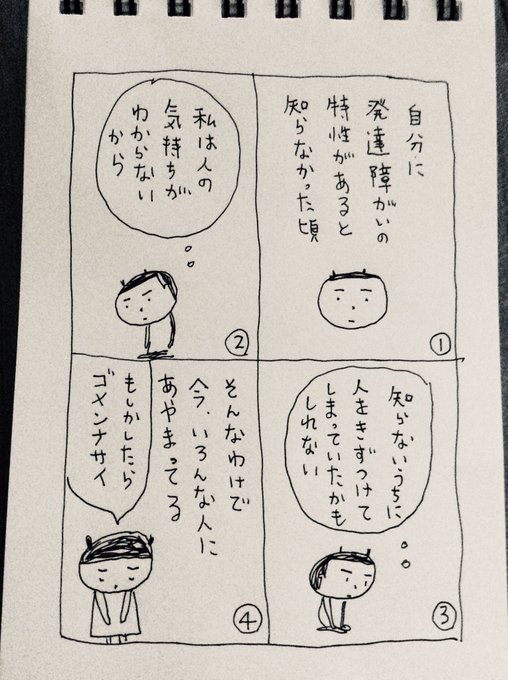 自分に
発達障がいの
特性があると
知らなかった頃
①
私は人の
気持ちが
わからない
から
②
知らないうちに
人をきずつけて
しまっていたかも
しれない
③
そんなわけで
今、いろんな人に
あやまってる
もしかしたら
ゴメンナサイ
④